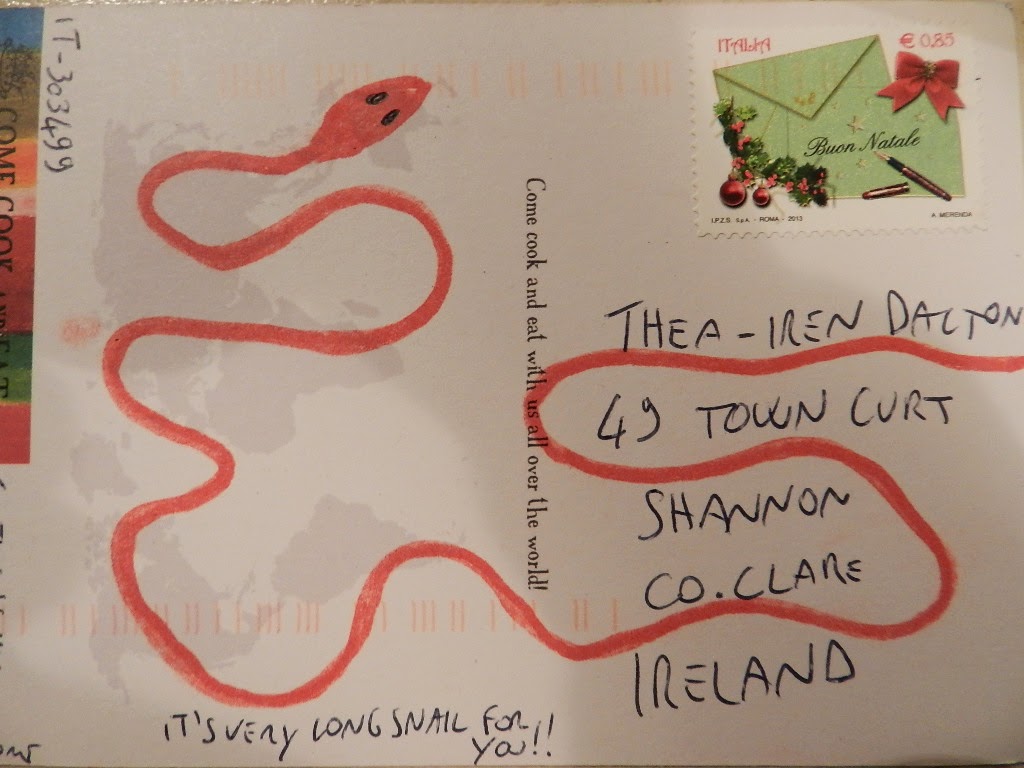 IT-303499
COME COOK AND EAT
ITALIA
€ 0,85
Buon Natale
I.P.Z.S. S.p.A. - ROMA - 2013
A. MERENDA
Come cook and eat with us all over the world!
THEA-IREN DALTON
49 TOWN CURT
SHANNON
CO. CLARE
IRELAND
IT'S VERY LONG SNAIL FOR
YOU!!